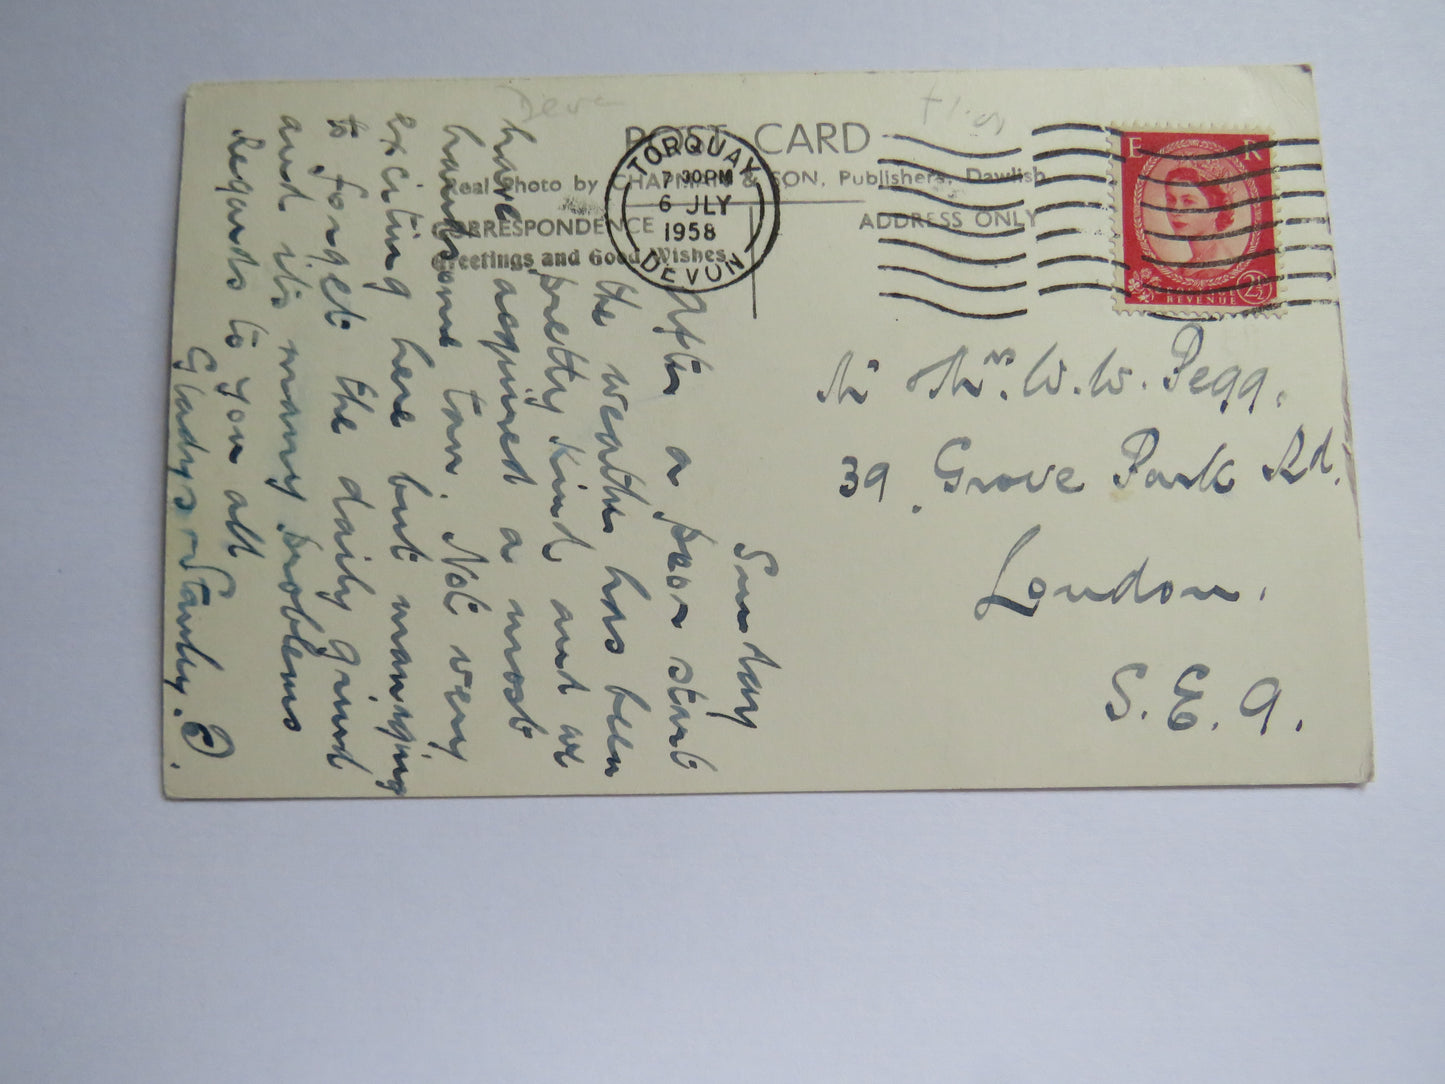 Deva
POST CARD
Real Photo by CHAPMAN & SON, Publishers, Dawlish
CORRESPONDENCE
ADDRESS ONLY
Greetings and Good Wishes
TORQUAY
7 30PM
6 JLY
1958
DEVON
E R
POSTAGE
REVENUE
2½D
M & Mrs. W. W. Pegg.
39, Grove Park Rd.
London.
S.E.9.
Sunday
After a poor start
the weather has been
pretty kind and we
have acquired a most
handsome tan. Not very
exciting here but managing
to forget the daily grind
and its many problems
Regards to you all
Gladys & Stanley. P.